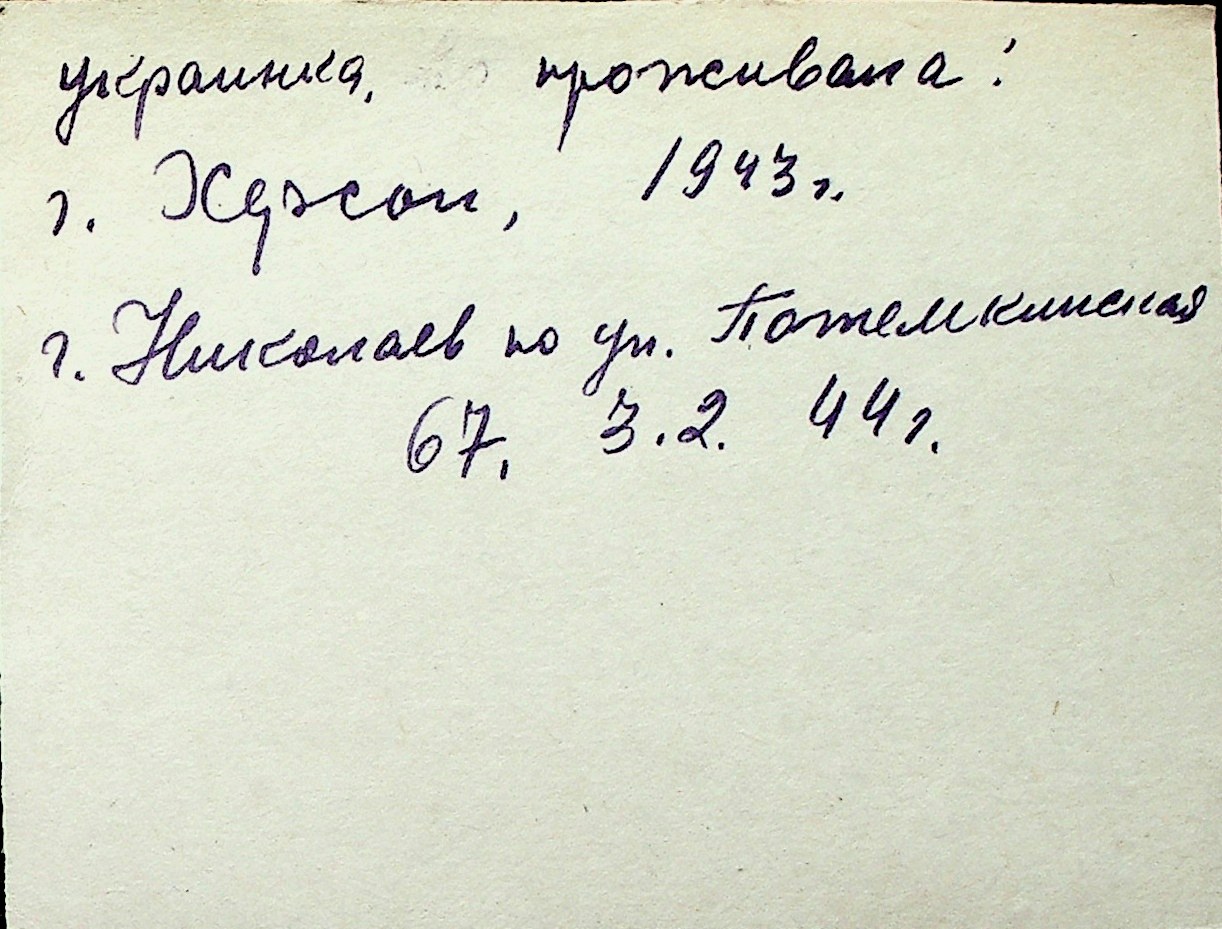 украинка, проживала:
г. Херсон, 1943г.
г. Николаев по ул. Потемкинская
67. 3.2. 44г.